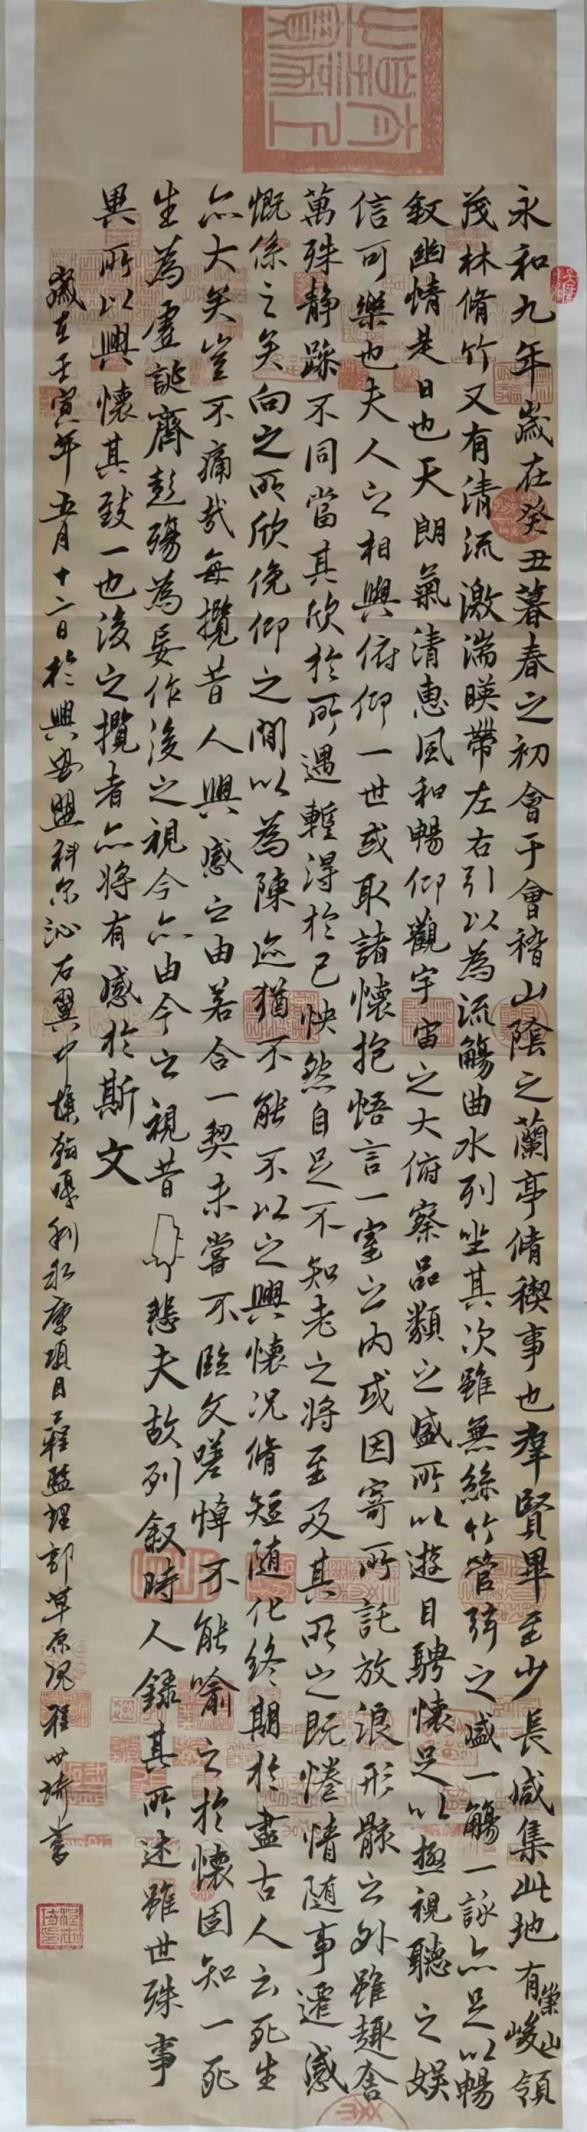 永和九年歲在癸丑暮春之初會于會稽山陰之蘭亭脩禊事也羣賢畢至少長咸集此地有崇山峻領
茂林脩竹又有清流激湍暎帶左右引以為流觴曲水列坐其次雖無絲竹管弦之盛一觴一詠亦足以暢
叙幽情是日也天朗氣清惠風和暢仰觀宇宙之大俯察品類之盛所以遊目騁懷足以極視聽之娛
信可樂也夫人之相與俯仰一世或取諸懷抱悟言一室之內或因寄所託放浪形骸之外雖趣舍
萬殊静躁不同當其欣於所遇蹔得於己怏然自足不知老之將至及其所之既惓情隨事遷感
慨係之矣向之所欣俛仰之閒以為陳迹猶不能不以之興懷況脩短隨化終期於盡古人云死生
亦大矣豈不痛哉每攬昔人興感之由若合一契未嘗不臨文嗟悼不能喻之於懷固知一死
生為虛誕齊彭殤為妄作後之視今亦由今之視昔悲夫故列叙時人錄其所述雖世殊事
異所以興懷其致一也後之攬者亦將有感於斯文
歲在壬寅年五月十二日於興安盟科尔沁右翼中旗利永康項目工程監理部草原